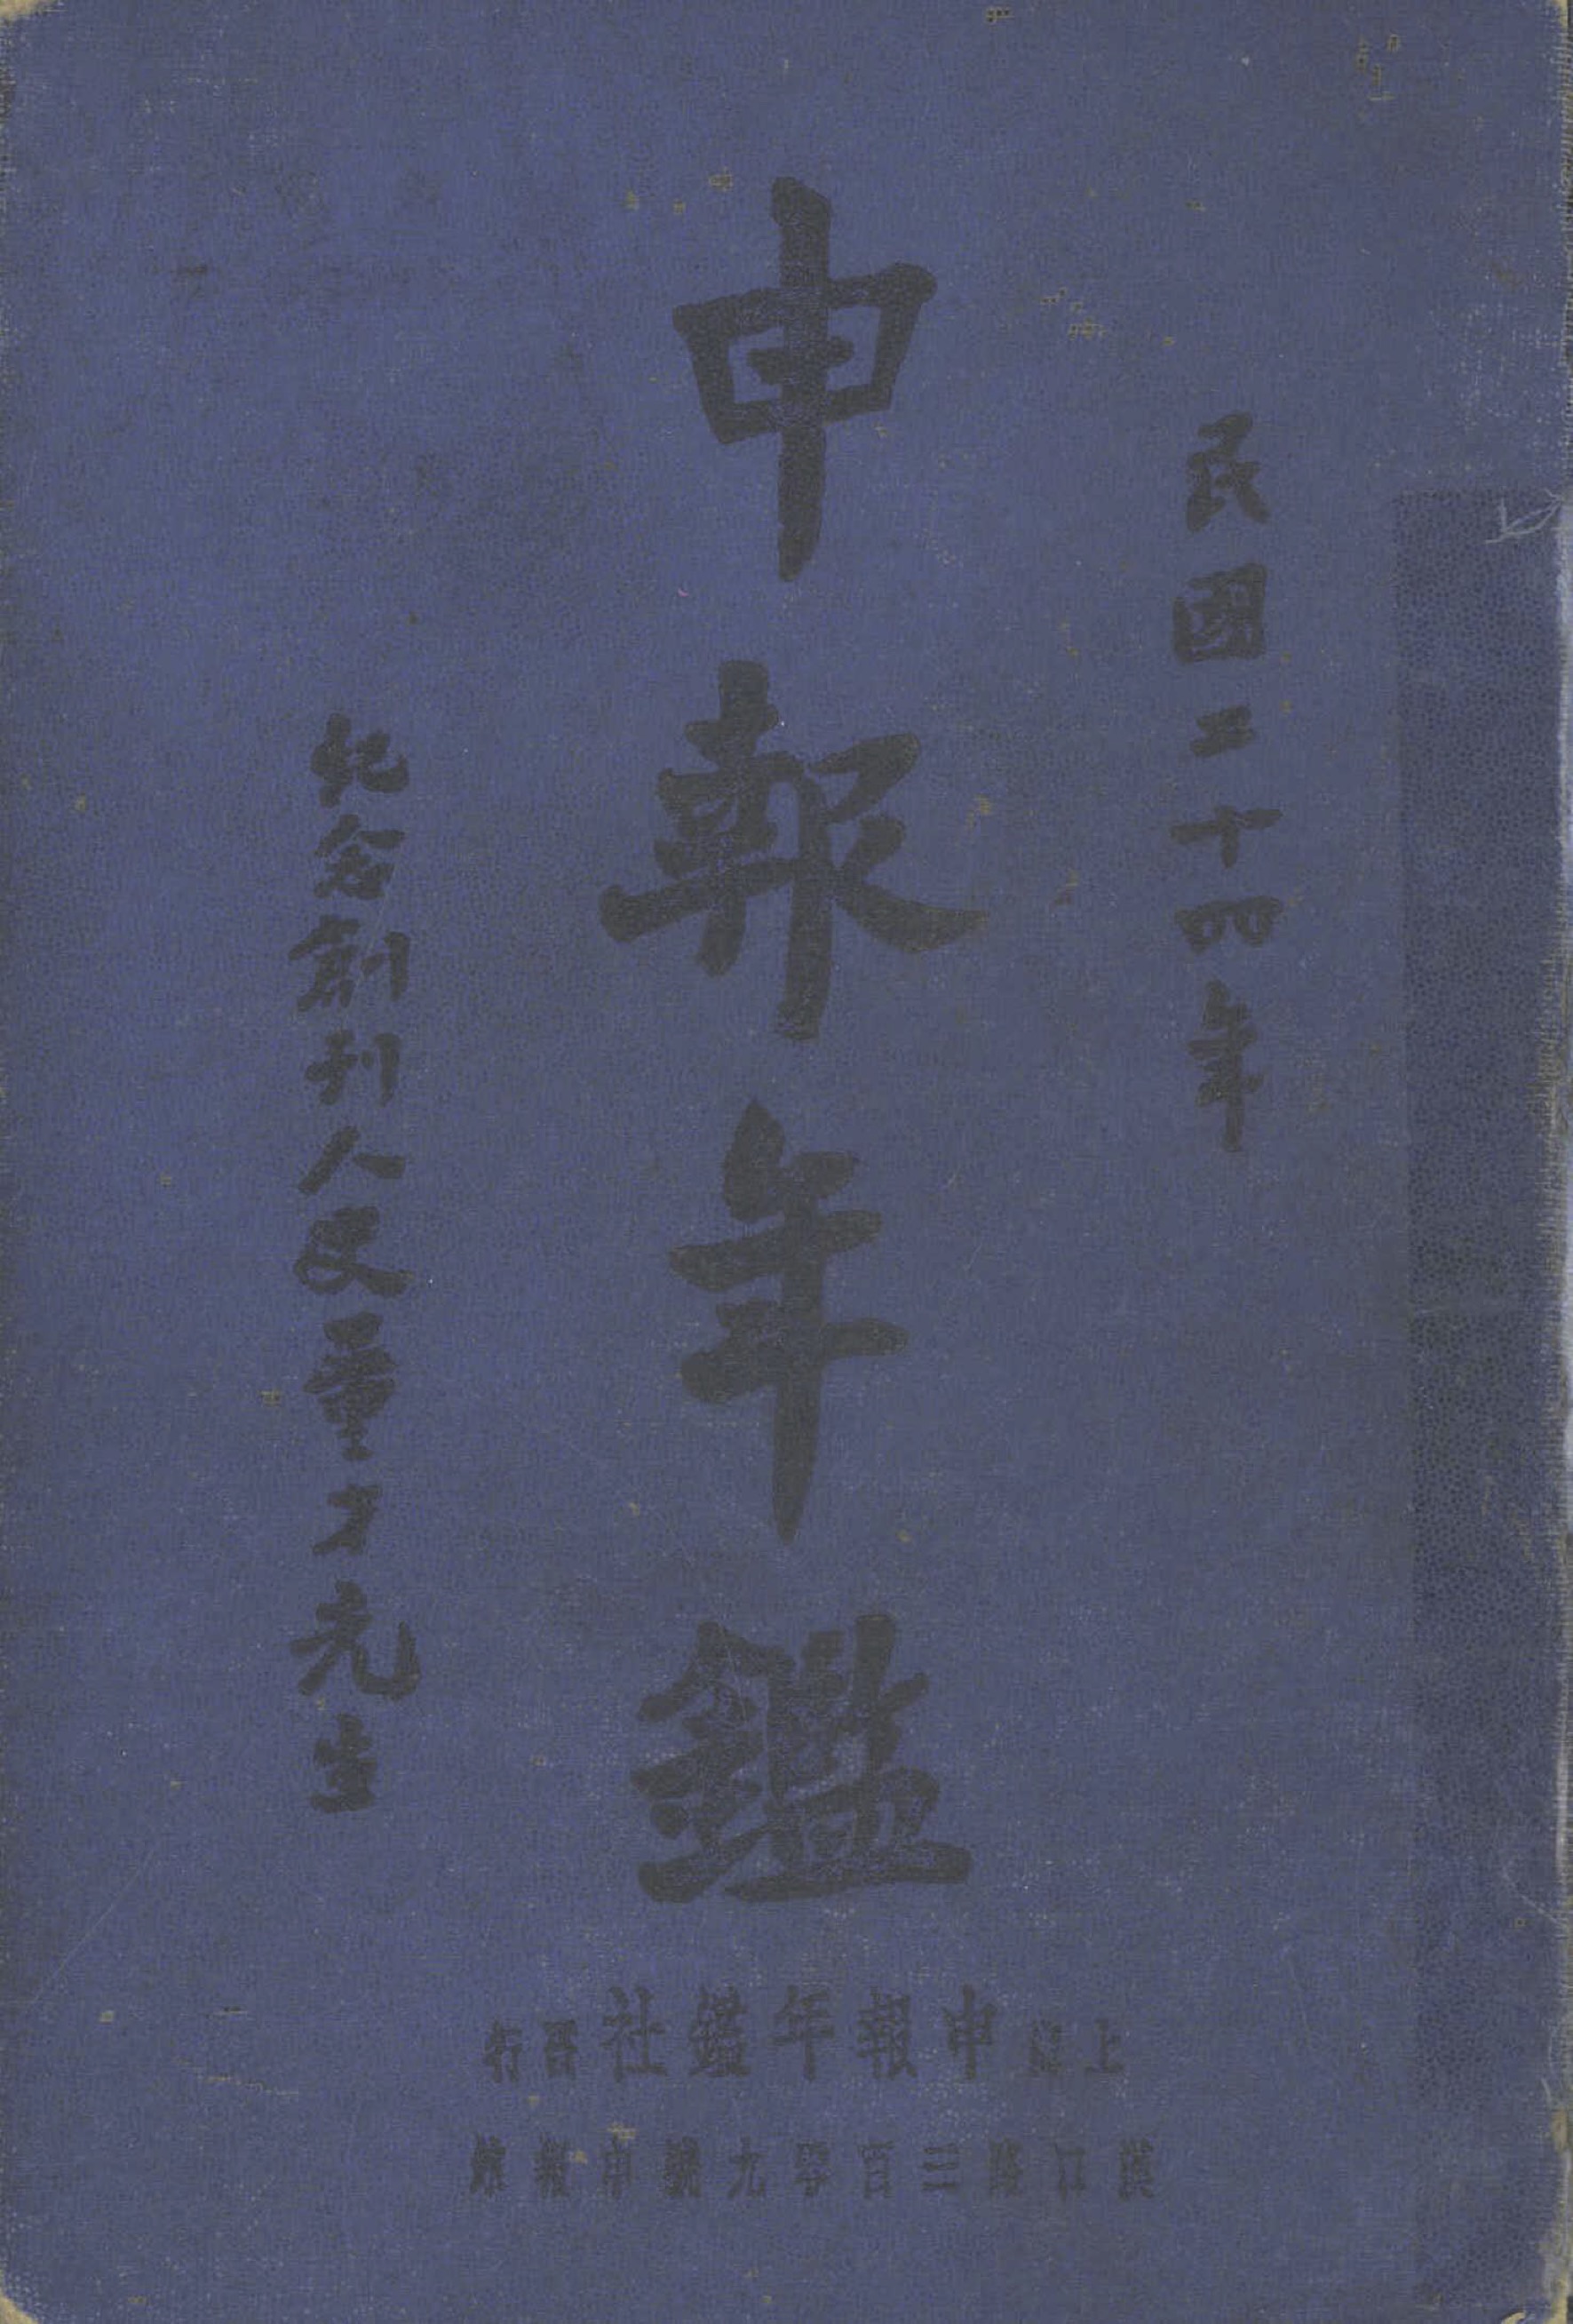 民國二十四年
申報年鑑
紀念創刊人史量才先生
上海申報年鑑社發行
漢口路三百零九號申報館